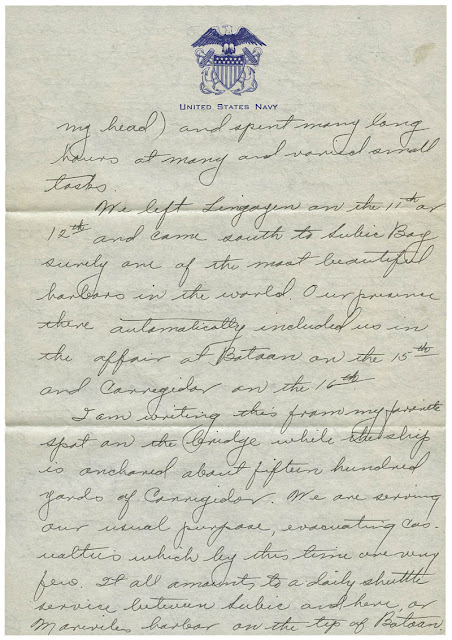 UNITED STATES NAVY
my head) and spent many long
hours at many and varied small
tasks.
We left Lingagen on the 11th or
12th and came south to Subic Bay
surely one of the most beautiful
harbors in the world. Our presence
there automatically included us in
the affair at Bataan on the 15th
and Corregidor on the 16th
I am writing this from my favorite
spot on the bridge while the ship
is anchored about fifteen hundred
yards of Corregidor. We are serving
our usual purpose, evacuating cas-
ualties which by this time are very
few. It all amounts to a daily shuttle
service between Subic and here, or
Mariveles harbor on the tip of Bataan